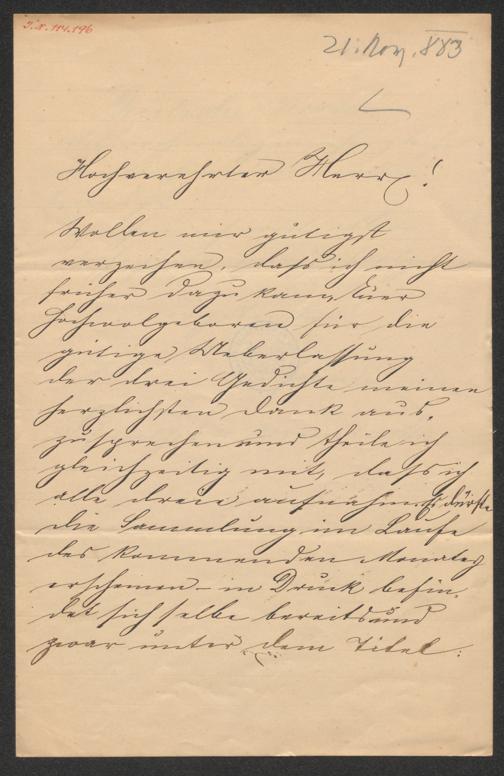 I.N. 114.196
21. Nov. 883
Hochverehrter Herr!
Wollen mir gütigst
verzeihen, dass ich nicht
früher dazu kam, Euer
Hochwolgeboren für die
gütige Ueberlassung
der drei Gedichte meinen
herzlichsten Dank aus-
zusprechen und theile ich
gleichzeitig mit, dass ich
alle dreie aufnehme. Es dürfte
die Sammlung im Laufe
des kommenden Monates
erscheinen – in Druck befin-
det sich selbe bereits und
zwar unter dem Titel: